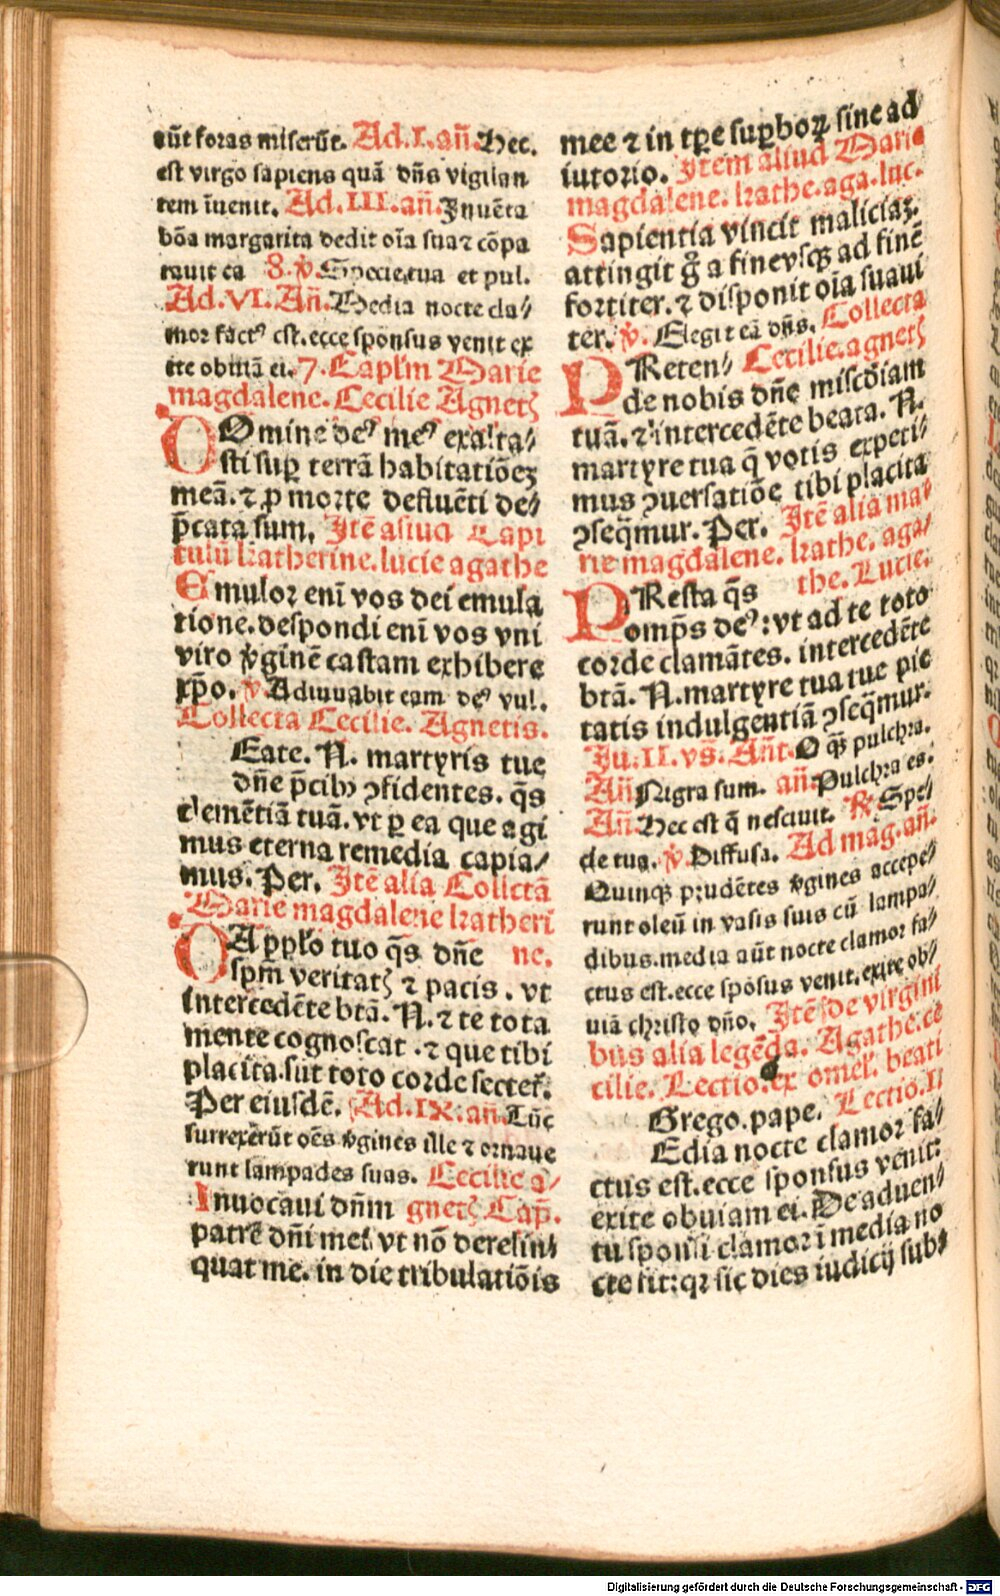 aūt foras miserūt. Ad. I. añ. Hec.
est virgo sapiens quā dñs vigilan
tem īuenit. Ad. III. añ. Inuēta
bōa margarita dedit oīa sua ⁊ cōpa
rauit ea 8. ꝟ. Specie tua et pul.
Ad. VI. Añ. Media nocte cla⸗
mor factꝰ est. ecce sponsus venit ex
ite obuiā ei. 7. Capl'm Marie
magdalene. Cecilie Agnetꝭ
DOmine deꝰ meꝰ exalta⸗
sti suꝑ terrā habitatiōeꝫ
meā. ⁊ ꝓ morte defluēti de⸗
p̄cata sum. Itē aliud Capi
tulū katherine. lucie agathe
Emulor enī vos dei emula
tione. despondi enī vos vni
viro ꝟginē castam exhibere
xp̄o. ꝟ. Adiuuabit eam deꝰ vul.
Collecta Cecilie. Agnetis.
Eate. N. martyris tue
dñe p̄cibꝰ ꝯfidentes. q̄s
clemētiā tuā. vt ꝑ ea que agi
mus eterna remedia capia⸗
mus. Per. Itē alia Colictā
Marie magdalene katheri
DA pplo tuo q̄s dñe ne.
spm veritatꝭ ⁊ pacis. vt
intercedēte btā. N. ⁊ te tota
mente cognoscat. ⁊ que tibi
placita sut toto corde sectet̄.
Per eiusdē. Ad. IX. añ. Tūc
surrexerūt oēs ꝟgines ille ⁊ ornaue
runt lampades suas. Cecilie a⸗
Inuocaui dñm gnetꝭ Cap̄.
patrē dñi mei vt nō derelin⸗
quat me. in die tribulatiōis
mee ⁊ in tꝑe suꝑboꝝ sine ad
iutorio. Item aliud Marie
magdalene. kathe. aga. luc.
Sapientia vincit maliciaꝫ.
attingit g̊ a fine vsqꝫ ad finē
fortiter. ⁊ disponit oīa suaui
ter. ꝟ. Elegit eā dñs. Collecta
PReten⸗ Cecilie. agnetꝭ
de nobis dñe miscd̄iam
tuā. ⁊ intercedēte beata. N.
martyre tua q̄ votis expeti⸗
mus ꝯuersatiōe tibi placita
ꝯseq̄mur. Per. Itē alia ma⸗
rie magdalene. kathe. aga⸗
PResta q̄s the. Lucie.
omp̄s deꝰ: vt ad te toto
corde clamātes. intercedēte
btā. N. martyre tua tue pie
tatis indulgentiā ꝯseq̄mur.
In. II. vs̄. Añt. O q̄ꝫ pulchra.
Añ Nigra sum. añ. Pulchra es.
Añ. Hec est q̄ nesciuit. ℟. Spe⸗
cie tua. ꝟ. Diffusa. Ad mag. añ.
Quinqꝫ prudētes ꝟgines accepe⸗
runt oleū in vasis suis cū lampa⸗
dibus. media aūt nocte clamor fa⸗
ctus est. ecce spōsus venit. exite ob⸗
uiā christo dño. Itē de virgini
bus alia legēda. Agathe. ce
cilie. Lectio. ex omel'. beati
Grego. pape. Lectio. II
Edia nocte clamor fa⸗
ctus est. ecce sponsus venit:
exite obuiam ei. De aduen⸗
tu sponsi clamor ī media no
cte fit: qꝛ sic dies iudicij sub⸗
Digitalisierung gefördert durch die Deutsche Forschungsgemeinschaft - DFG